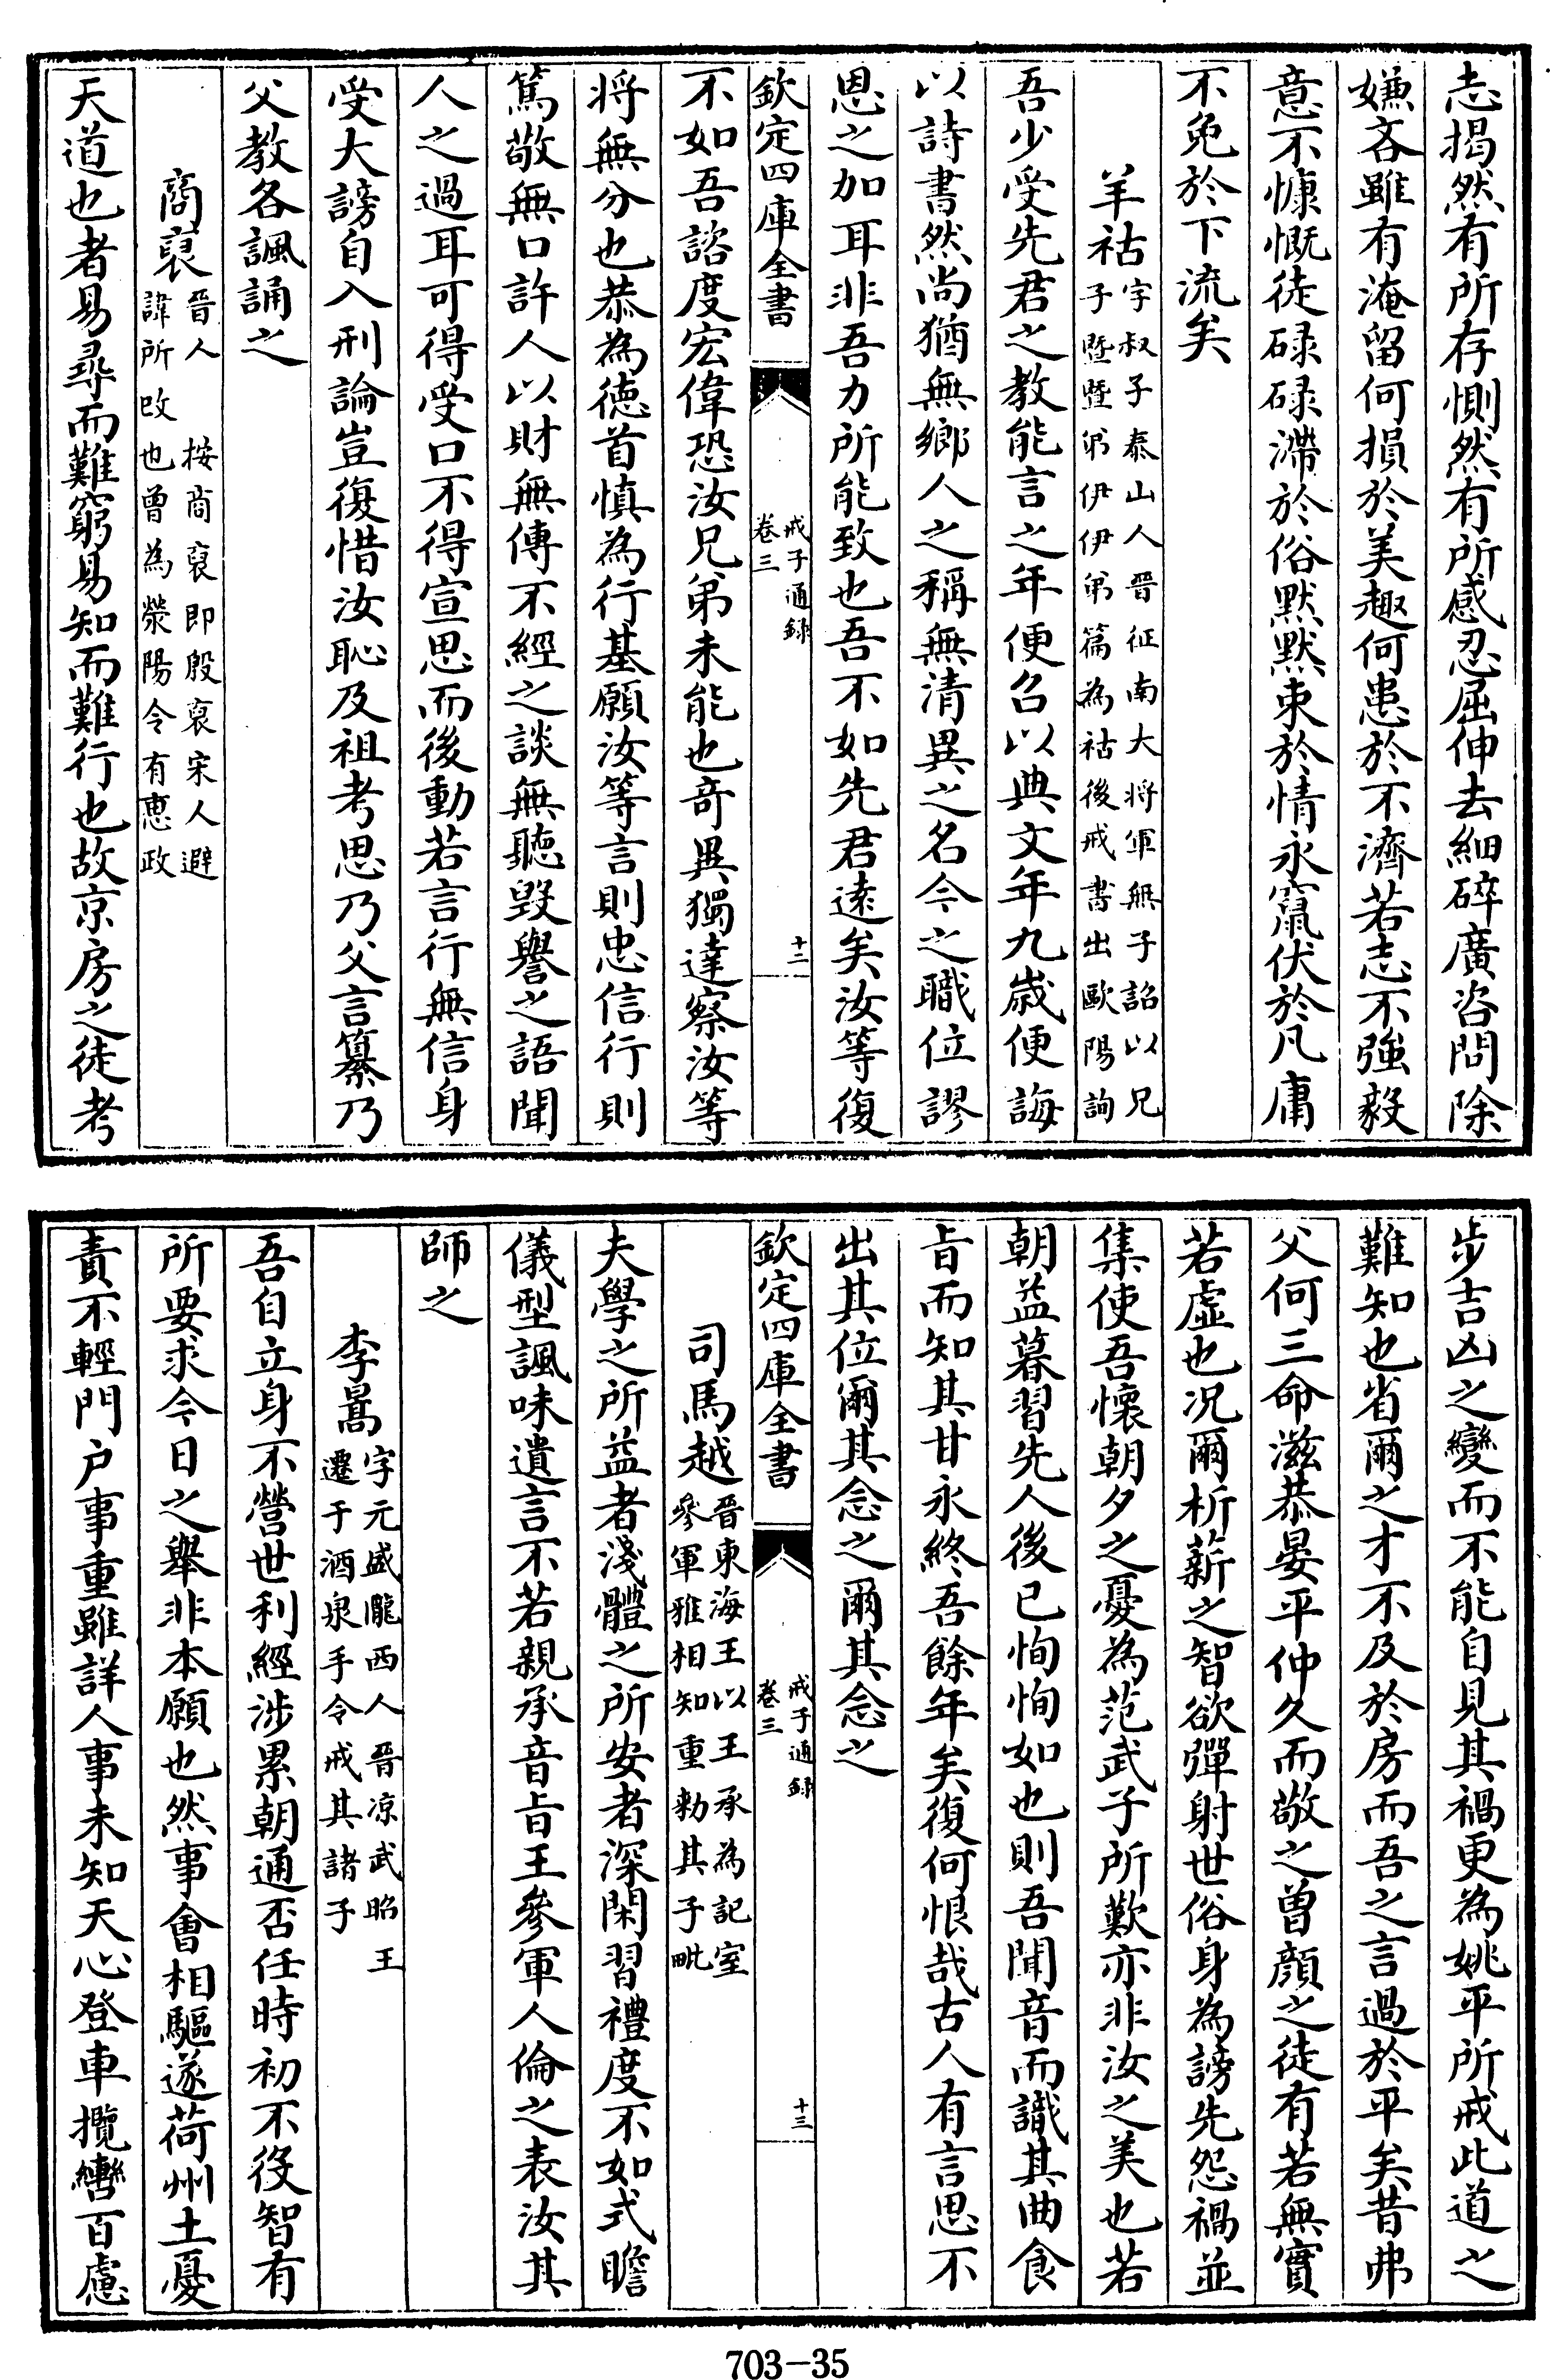 志揭然有所存惻然有所感忍屈伸去細碎廣咨問除
嫌吝雖有淹留何損於美趣何患於不濟若志不強毅
意不慷慨徒碌碌滯於俗默默束於情永竄伏於凡庸
不免於下流矣
羊祜字叔子泰山人晉征南大将軍無子詔以兄
子暨暨弟伊伊弟篇為祜後戒書出歐陽詢
吾少受先君之教能言之年便召以典文年九歲便誨
以詩書然尚猶無鄉人之稱無清異之名今之職位謬
恩之加耳非吾力所能致也吾不如先君逺矣汝等復
欽定四庫全書
戒子通録
卷三
十二
不如吾諮度宏偉恐汝兄弟未能也奇異獨達察汝等
将無分也恭為徳首慎為行基願汝等言則忠信行則
篤敬無口許人以財無傳不經之談無聽毀譽之語聞
人之過耳可得受口不得宣思而後動若言行無信身
受大謗自入刑論豈復惜汝恥及祖考思乃父言纂乃
父教各諷誦之
商裒晉人　按商裒即殷裒宋人避
諱所改也曽為滎陽令有惠政
天道也者易尋而難窮易知而難行也故京房之徒考
步吉凶之變而不能自見其禍更為姚平所戒此道之
難知也省爾之才不及於房而吾之言過於平矣昔弗
父何三命滋恭晏平仲久而敬之曽顔之徒有若無實
若虛也况爾析薪之智欲彈射世俗身為謗先怨禍並
集使吾懷朝夕之憂為范武子所歎亦非汝之美也若
朝益暮習先人後已恂恂如也則吾聞音而識其曲食
㫖而知其甘永終吾餘年矣復何恨哉古人有言思不
出其位爾其念之爾其念之
欽定四庫全書
戒子通録
卷三
十三
司馬越晉東海王以王承為記室
參軍雅相知重勑其子毗
夫學之所益者淺體之所安者深閑習禮度不如式瞻
儀型諷味遺言不若親承音㫖王參軍人倫之表汝其
師之
李暠字元盛隴西人晉凉武昭王
遷于酒泉手令戒其諸子
吾自立身不營世利經涉累朝通否任時初不役智有
所要求今日之舉非本願也然事會相驅遂荷州土憂
責不輕門户事重雖詳人事未知天心登車攬轡百慮
703-35